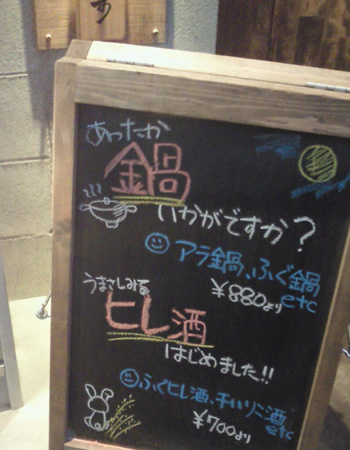 す
あったか
鍋
いかがですか?
アラ鍋、ふぐ鍋
¥880より etc
うまさしみる
ヒレ酒
はじめました!!
ふぐヒレ酒、チハリニ酒
¥700より etc